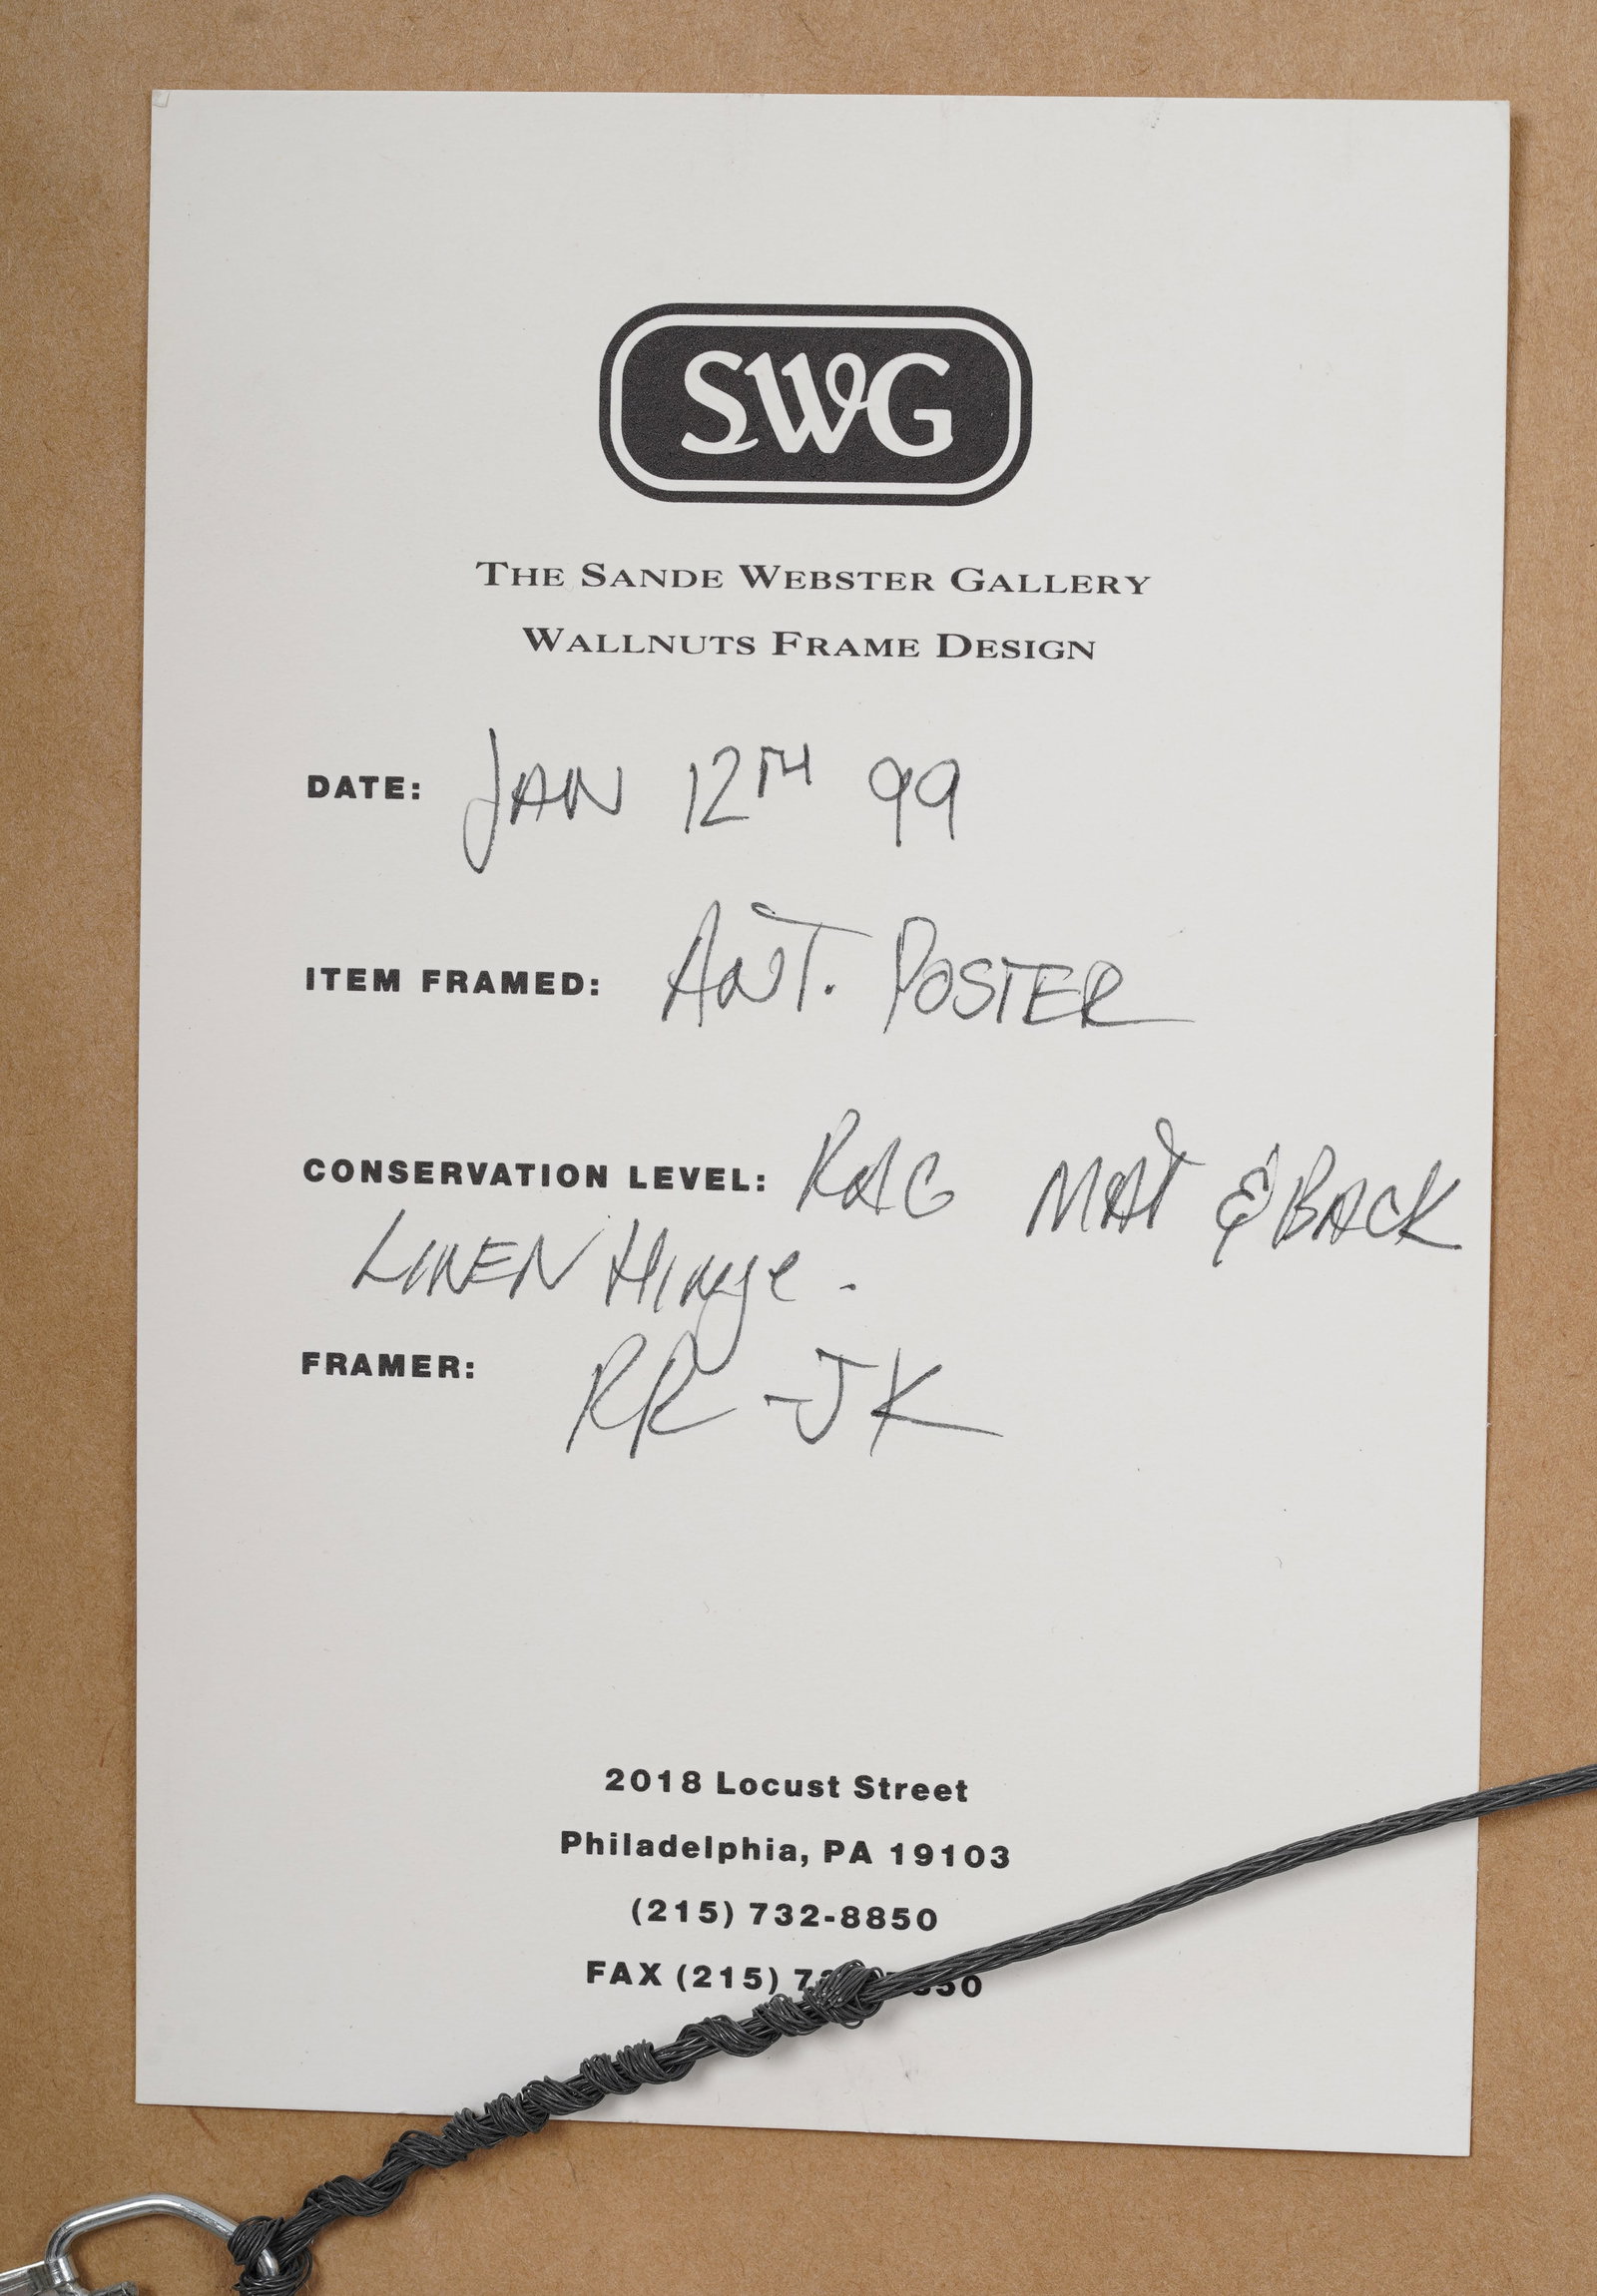 SWG
THE SANDE WEBSTER GALLERY
WALLNUTS FRAME DESIGN
DATE: JAN 12TH 99
ITEM FRAMED: ANT. POSTER
CONSERVATION LEVEL: RAG MAT & BACK
LINEN HINge.
FRAMER: RR - JK
2018 Locust Street
Philadelphia, PA 19103
(215) 732-8850
FAX (215)